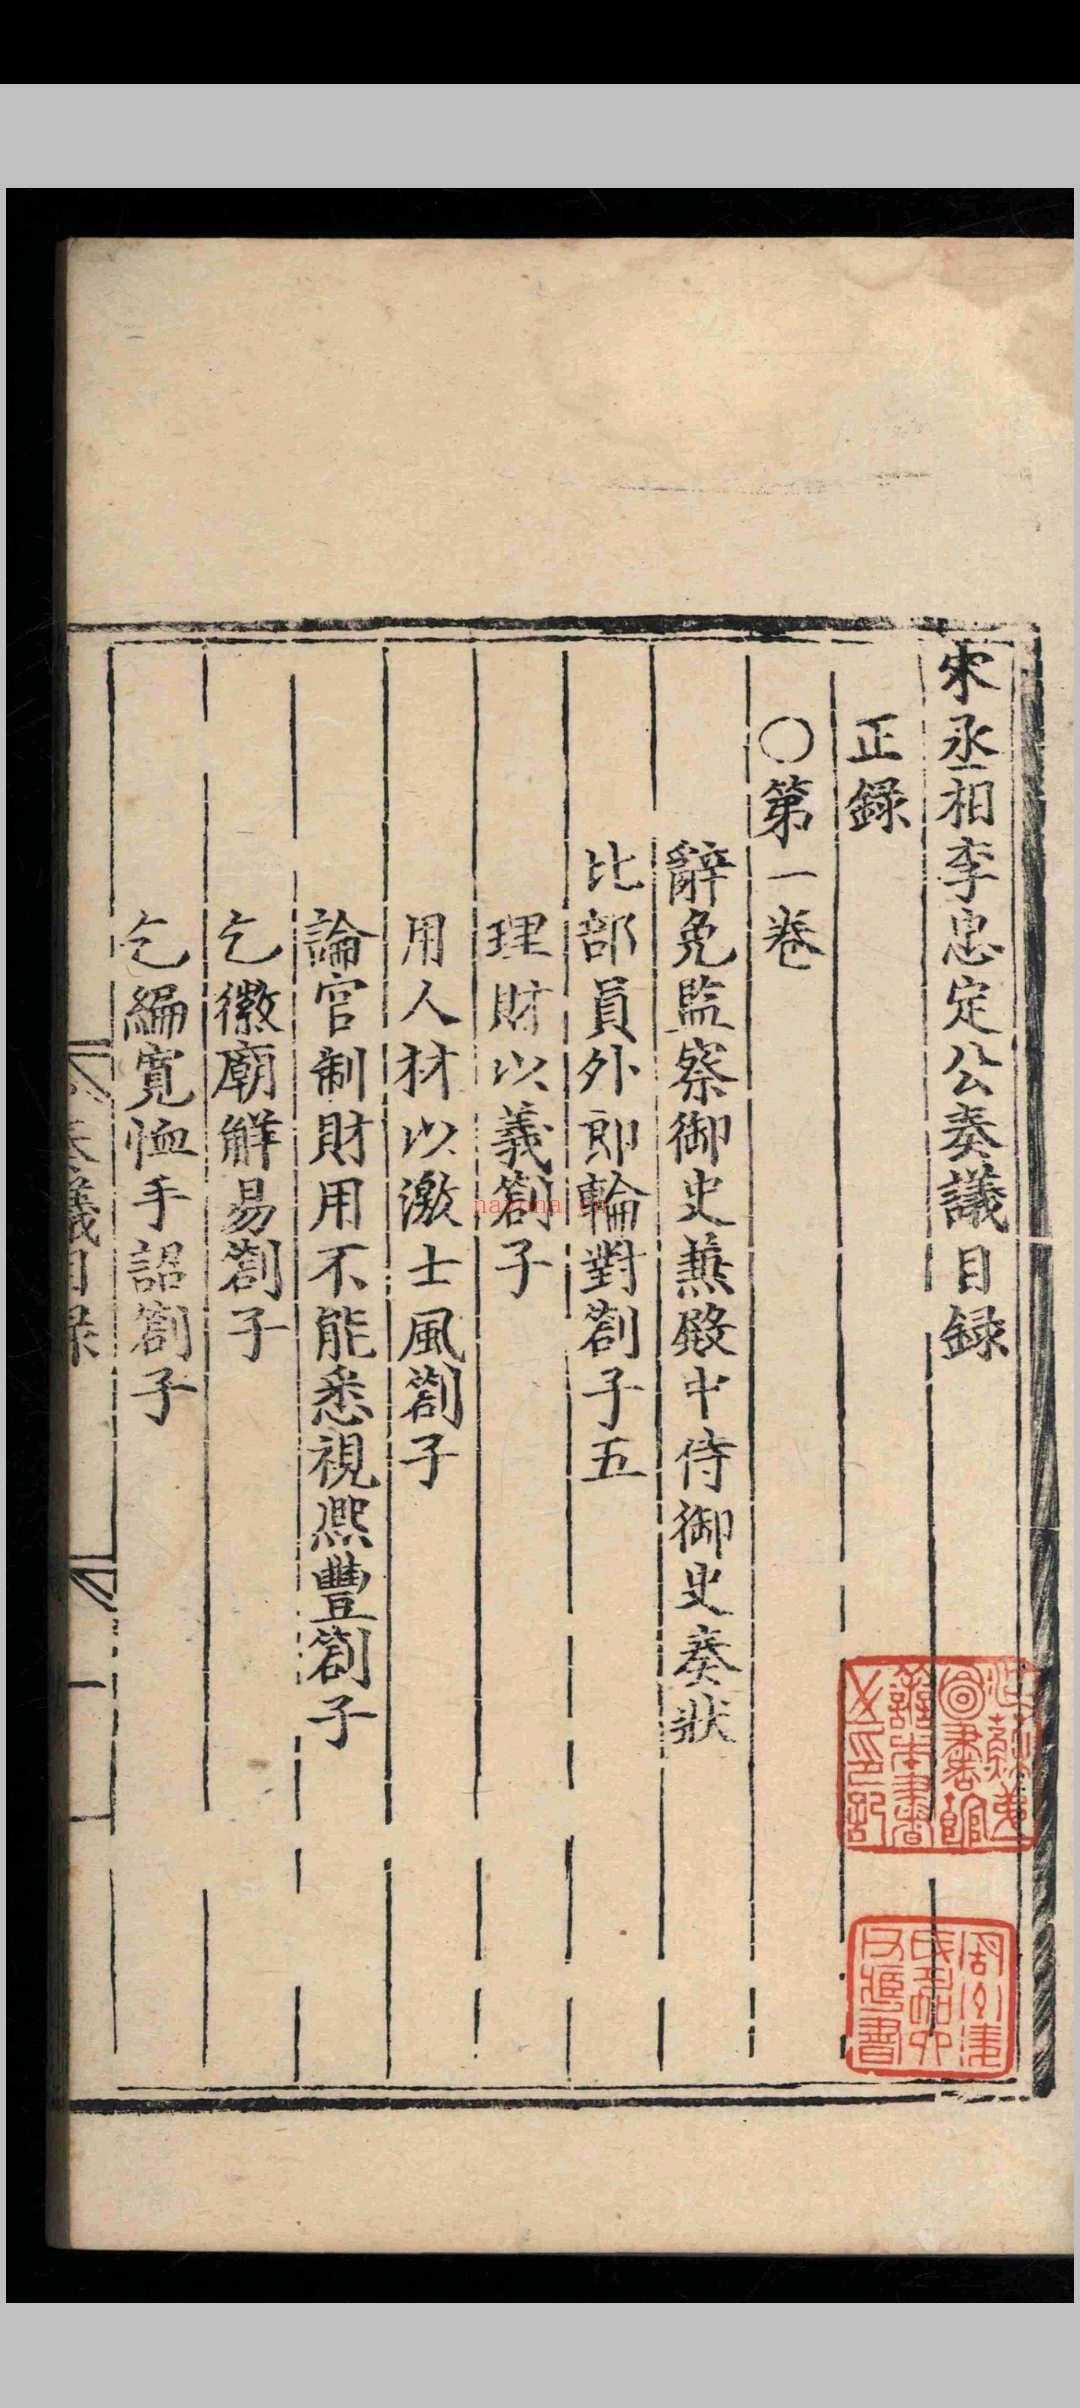 宋丞相李忠定公奏議目録
正録
○第一卷
辭免監察御史兼殿中侍御史奏狀
比部員外郎輪對劄子五
理財以義劄子
用人材以激士風劄子
論官制財用不能悉視熈豐劄子
乞徽廟觧易劄子
乞編寬恤手詔劄子
奏議目録